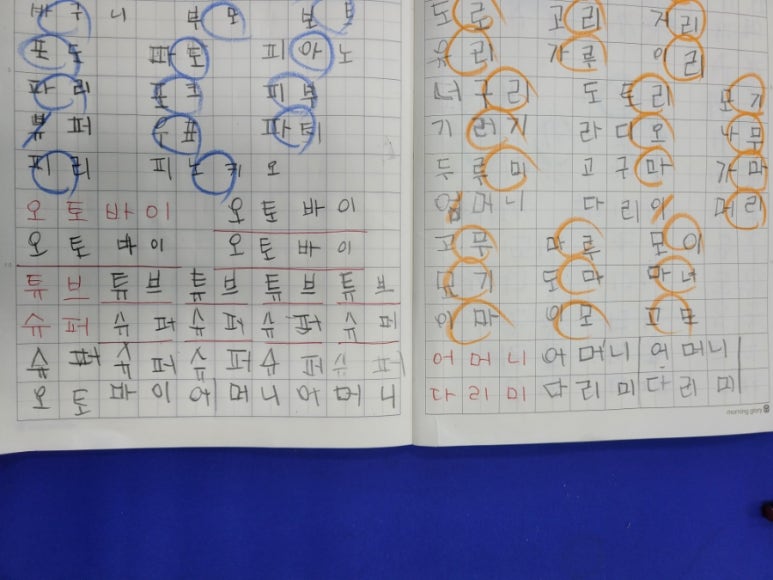 바 구 니
포 도 파 도 피 아 노
파 리 포 크 피 부
뷰 퍼 우 표 파 티
피 리 피 노 키 오
오 토 바 이 오 토 바 이
오 토 바 이 오 토 바 이
튜 브 튜 브 튜 브 튜 브 튜 브
슈 퍼 슈 퍼 슈 퍼 슈 퍼 슈 퍼
슈 퍼 슈 퍼 슈 퍼 슈 퍼 슈 퍼
오 토 바 이 어 머 니 어 머 니
도 로 고 리 거 리
유 리 가 루 이 리
너 구 리 도 토 리 모 기
기 러 기 라 디 오 나 무
두 루 미 고 구 마 가 마
어 머 니 다 리 이 머 리
고 무 마 루 모 이
모 기 도 마 마 녀
이 마 이 모 고 모
어 머 니 어 머 니 어 머 니
다 리 미 다 리 미 다 리 미
morning glory